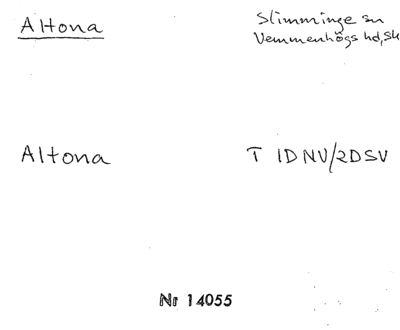 Altona
Slimminge sn
Vemmenhögs hd, Sk
Altona T 1DNV/2DSV
Nr 14055